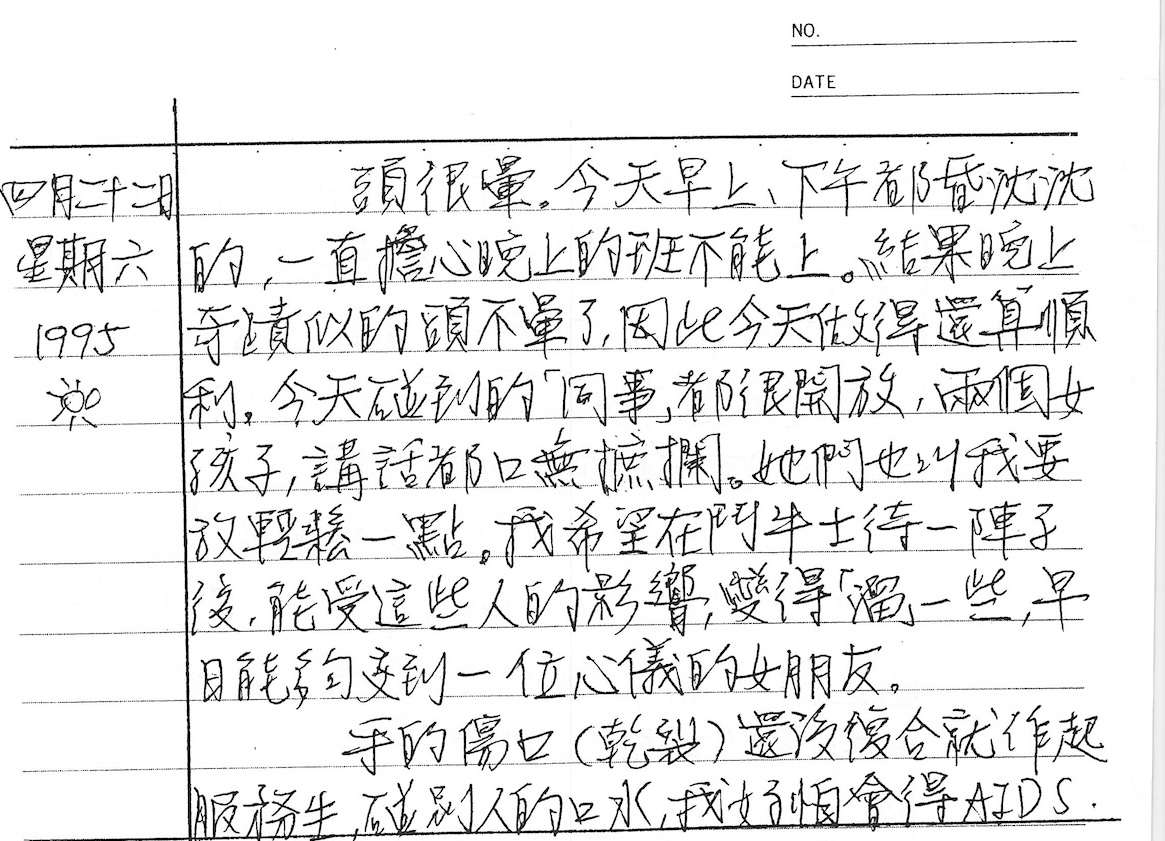 NO.
DATE
四月二十二日
星期六
1995
頭很暈。今天早上、下午都昏沈沈
的,一直擔心晚上的班不能上。結果晚上
奇蹟似的頭不暈了,因此今天做得還算順
利。今天碰到的「同事」都很開放,兩個女
孩子,講話都口無摭攔。她們也叫我要
放輕鬆一點。我希望在鬥牛士待一陣子
後,能受這些人的影響,變得「溜」一些,早
日能夠交到一位心儀的女朋友。
手的傷口(乾裂)還沒復合就作起
服務生,碰別人的口水,我好怕會得AIDS.